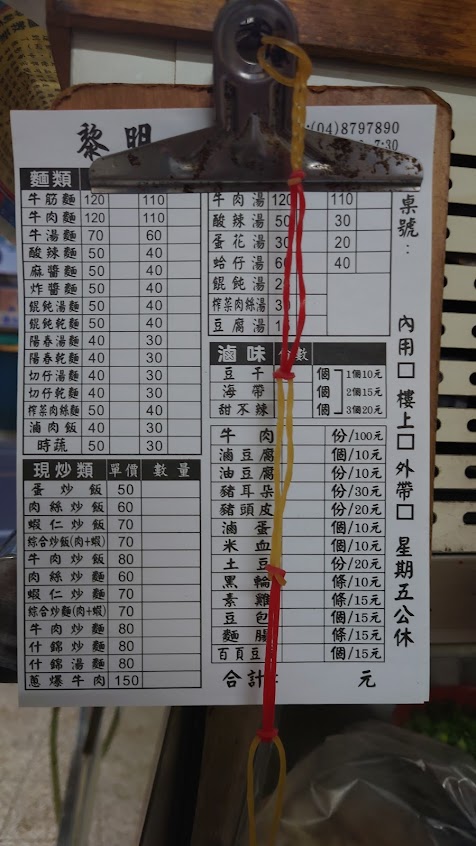 黎明
(04)8797890
7:30
麵類
牛筋麵 120 110
牛肉麵 120 110
牛湯麵 70 60
酸辣麵 50 40
麻醬麵 50 40
炸醬麵 50 40
餛飩湯麵 50 40
餛飩乾麵 50 40
陽春湯麵 50 40
陽春乾麵 50 40
切仔湯麵 50 40
切仔乾麵 50 40
榨菜肉絲麵 50 40
滷肉飯 40 30
時蔬 50 30
現炒類 單價 數量
蛋炒飯 50
肉絲炒飯 60
蝦仁炒飯 70
綜合炒飯(肉+蝦) 70
牛肉炒飯 80
肉絲炒麵 60
蝦仁炒麵 70
綜合炒麵(肉+蝦) 70
牛肉炒麵 80
什錦炒麵 80
什錦湯麵 80
蔥爆牛肉 150
牛肉湯 120 110
酸辣湯 50 30
蛋花湯 30 20
蛤仔湯 40
餛飩湯
榨菜肉絲湯
豆腐湯
滷味 份數
豆干 個 1個10元
海帶 個 2個15元
甜不辣 個 3個20元
牛肉 份/100元
滷豆腐 個/10元
油豆腐 份/10元
豬耳朵 份/30元
豬頭皮 份/20元
滷蛋 個/10元
米血 個/10元
土豆 份/20元
黑輪 條/10元
素雞 條/15元
豆包 個/15元
麵腸 條/15元
百頁豆 個/15元
合計: 元
桌號:
內用□ 樓上□ 外帶□ 星期五公休